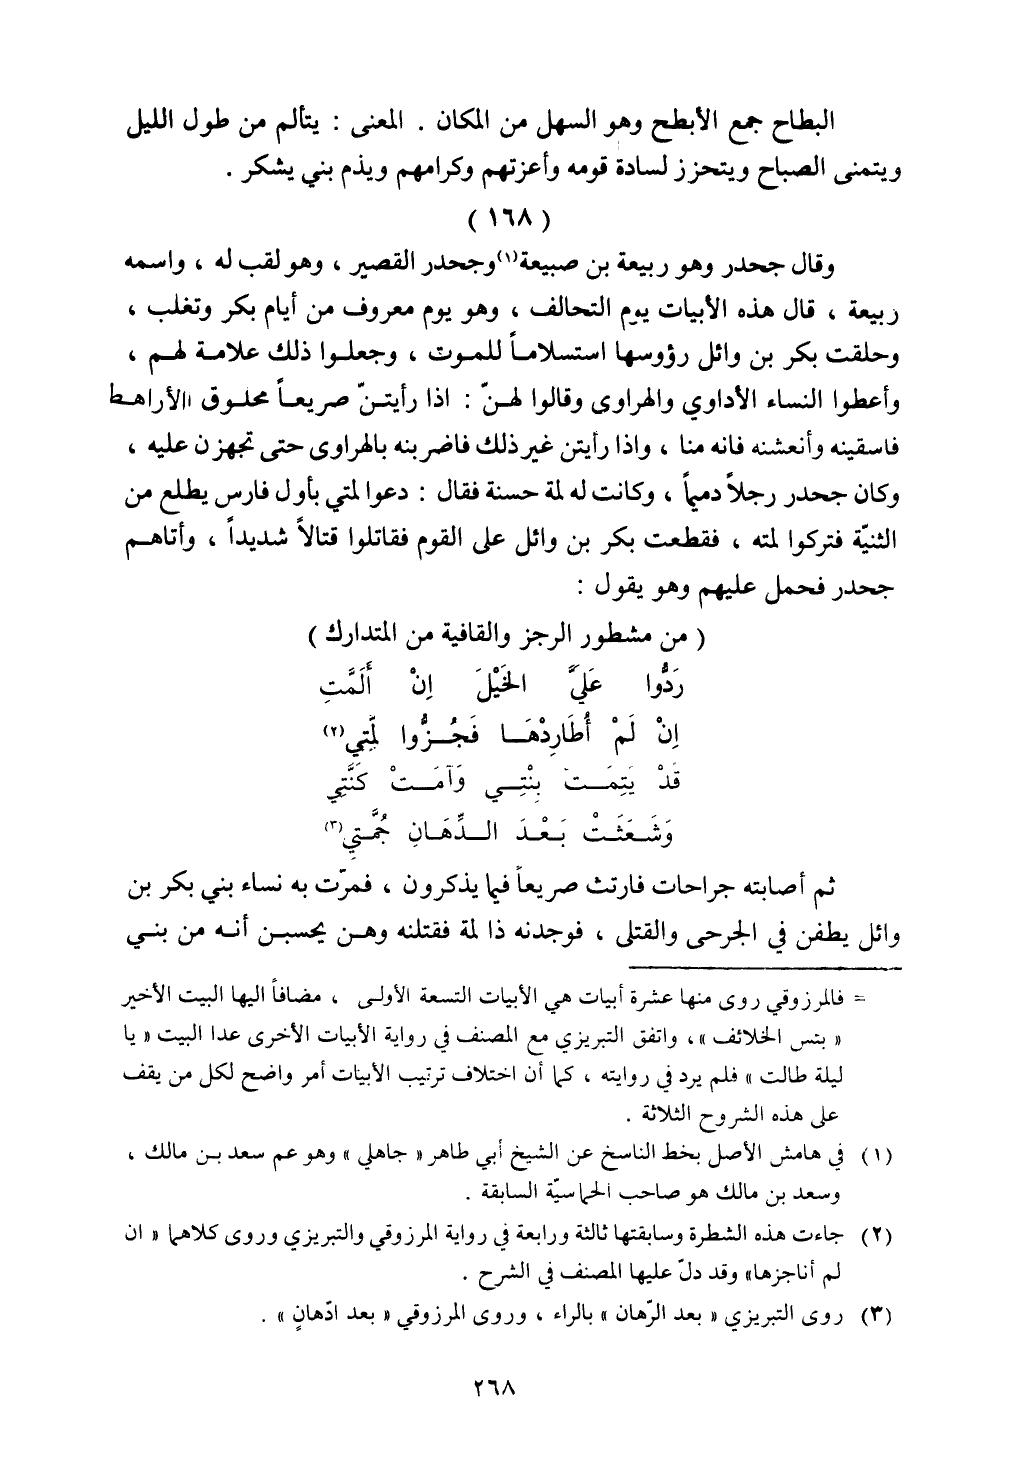 البطاح جمع الأبطح وهو السهل من المكان . المعنى : يتألم من طول الليل
ويتمنى الصباح ويتحزز لسادة قومه وأعزتهم وكرامهم ويذم بني يشكر .
( ١٦٨ )
وقال جحدر وهو ربيعة بن صبيعة(١) وجحدر القصير ، وهو لقب له ، واسمه
ربيعة ، قال هذه الأبيات يوم التحالف ، وهو يوم معروف من أيام بكر وتغلب ،
وحلقت بكر بن وائل رؤوسها استسلاماً للموت ، وجعلوا ذلك علامة لهم ،
وأعطوا النساء الأداوي والهراوى وقالوا لهنّ : اذا رأيتنّ صريعاً محلوق الأراهط
فاسقينه وأنعشنه فانه منا ، واذا رأيتن غير ذلك فاضربنه بالهراوى حتى تجهزن عليه ،
وكان جحدر رجلاً دميماً ، وكانت له لمة حسنة فقال : دعوا لمتي بأول فارس يطلع من
الثنيّة فتركوا لمته ، فقطعت بكر بن وائل على القوم فقاتلوا قتالاً شديداً ، وأتاهم
جحدر فحمل عليهم وهو يقول :
( من مشطور الرجز والقافية من المتدارك )
رَدُّوا عَلَيَّ الخَيْلَ اِنْ أَلَمَّتِ
اِنْ لَمْ أُطَارِدْهَا فَجُزُّوا لِمَّتِي(٢)
قَدْ يَتِمَتْ بِنْتِي وَآمَتْ كَنَّتِي
وَشَعَثَتْ بَعْدَ الدِّهَانِ جُمَّتِي(٣)
ثم أصابته جراحات فارتث صريعاً فيما يذكرون ، فمرّت به نساء بني بكر بن
وائل يطفن في الجرحى والقتلى ، فوجدنه ذا لمة فقتلنه وهن يحسبن أنه من بني
= فالمرزوقي روى منها عشرة أبيات هي الأبيات التسعة الأولى ، مضافاً اليها البيت الأخير
« بئس الخلائف » ، واتفق التبريزي مع المصنف في رواية الأبيات الأخرى عدا البيت « يا
ليلة طالت » فلم يرد في روايته ، كما أن اختلاف ترتيب الأبيات أمر واضح لكل من يقف
على هذه الشروح الثلاثة .
(١) في هامش الأصل بخط الناسخ عن الشيخ أبي طاهر « جاهلي » وهو عم سعد بن مالك ،
وسعد بن مالك هو صاحب الحماسيّة السابقة .
(٢) جاءت هذه الشطرة وسابقتها ثالثة ورابعة في رواية المرزوقي والتبريزي وروى كلاهما « ان
لم أناجزها» وقد دلّ عليها المصنف في الشرح .
(٣) روى التبريزي « بعد الرّهان » بالراء ، وروى المرزوقي « بعد ادّهانٍ » .
٢٦٨